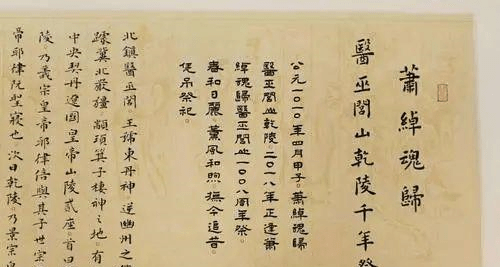 蕭綽魂歸
醫巫閭山乾陵千年祭
公元一〇一〇年四月甲子。蕭綽魂歸
醫巫閭山乾陵。二〇一八年正逢蕭
綽魂歸醫巫閭山一〇〇八周年祭。
春和日麗。薰風和煦。撫今追昔。
凭吊祭祀。
北鎮醫巫閭。王東丹神。幽州之
踞冀北嚴疆。顓頊箕子棲神之地。有
中央契丹遼國皇帝山陵貳座。首曰
陵。乃義宗皇帝耶律倍與其子世宗
帝耶律阮聖寢也。次曰乾陵。乃景宗皇